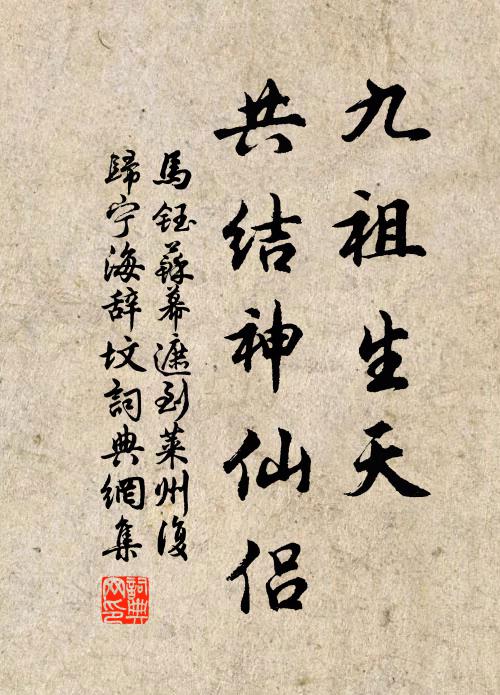 九祖生天
共结神仙侣
馬鈺蘇幕遮到萊州復
歸宁海辞坟詞典網集
詞典网印